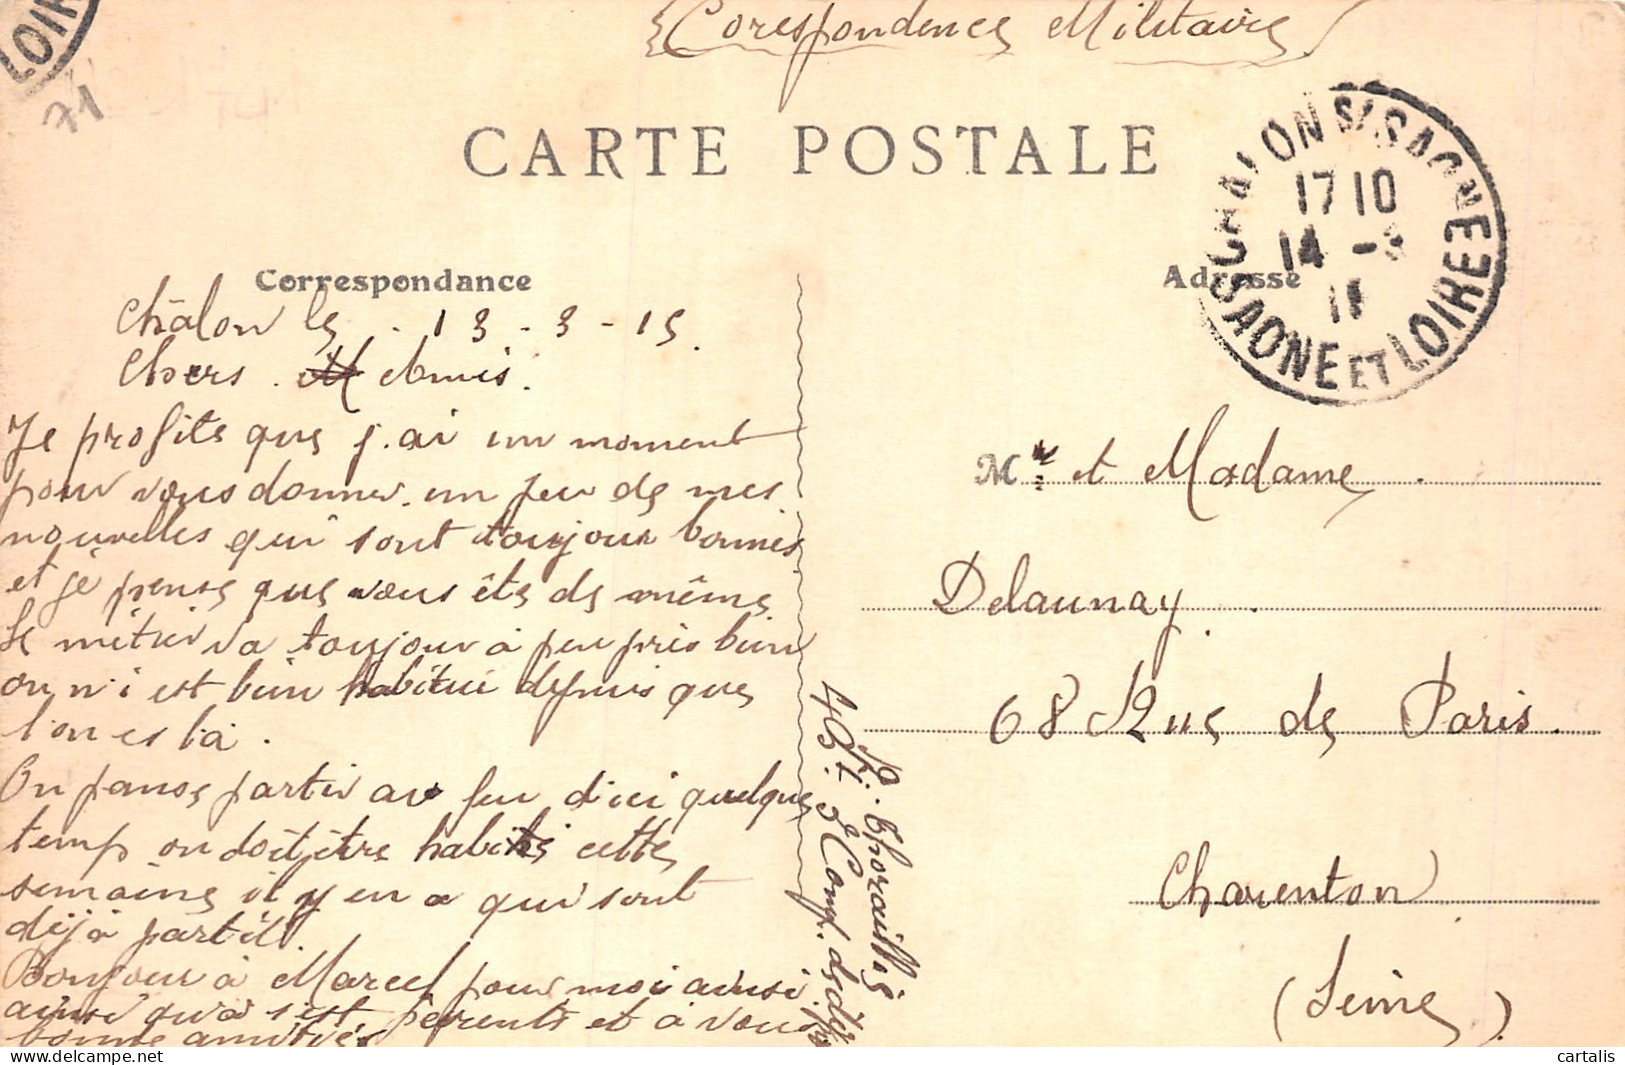 LOIR
71
Corespondence Militaire
CARTE POSTALE
CHALON S/ SAONE
17 10
14 -3
15
SAONE ET LOIRE
Correspondance
Adresse
Châlon le - 13 - 3 - 15.
Chers. Amis.
Je profite que j.ai un moment
pour vous donner un peu de mes
nouvelles qui sont toujour bonnes
et je pense que vous ête de même
Le métier va toujour à peu près bien
on n'i est bien habitué depuis que
l'on es là.
On panse partir av peu d'ici quelque
temp on doit être habillé cette
semaine il y en a qui sont
déjà partit.
Bonjour à Marcel pour moi ainsi
ainsi qu'a s'est parents et à vous
bonne amitiés
P. Thoraille
4 Oct. 3 Comp. de dépôt
Mr et Madame
Delaunay.
68 Rue de Paris.
Charenton
(Seine)
cartalis